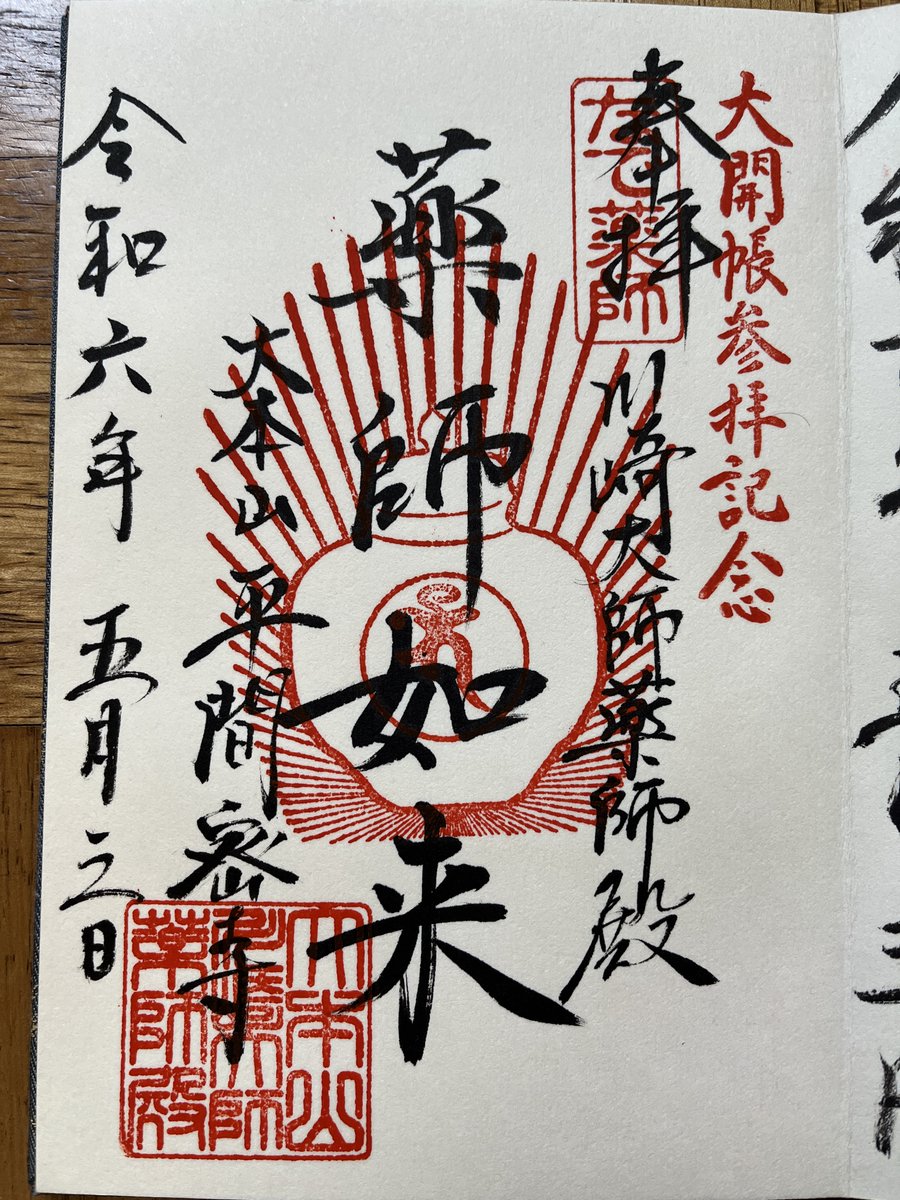 大開帳参拝記念
奉拝
なで薬師
川﨑大師薬師殿
薬師如来
大本山平間密寺
大本山
川崎大師
薬師殿
令和六年五月三日